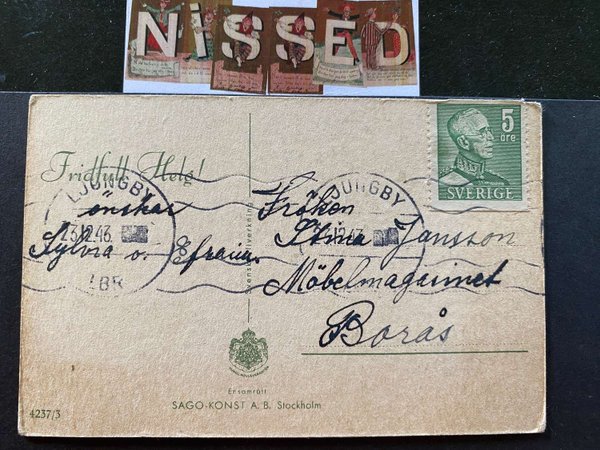 NISSED
Fridfull Helg!
önskar
Sylvia o. Efraim.
LJUNGBY
12.43
LBR
Svensk tillverkning
Ensamrätt
SAGO-KONST A. B. Stockholm
4237/3
5
öre
SVERIGE
LJUNGBY
12.43
Fröken
Jansson
Möbelmagasinet
Borås